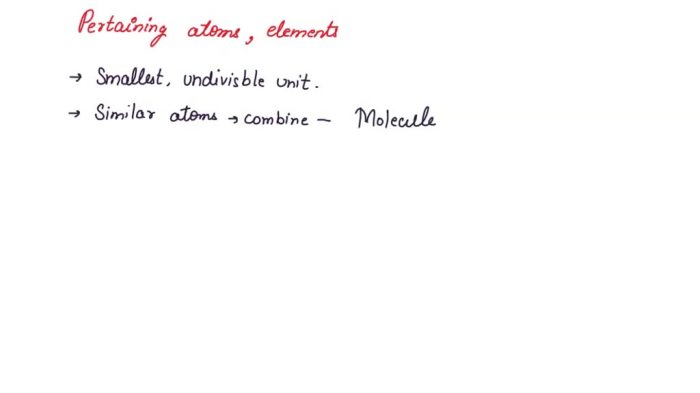 Pertaining atoms, elements
→ Smallest, undivisble unit.
→ Similar atoms → combine – Molecule